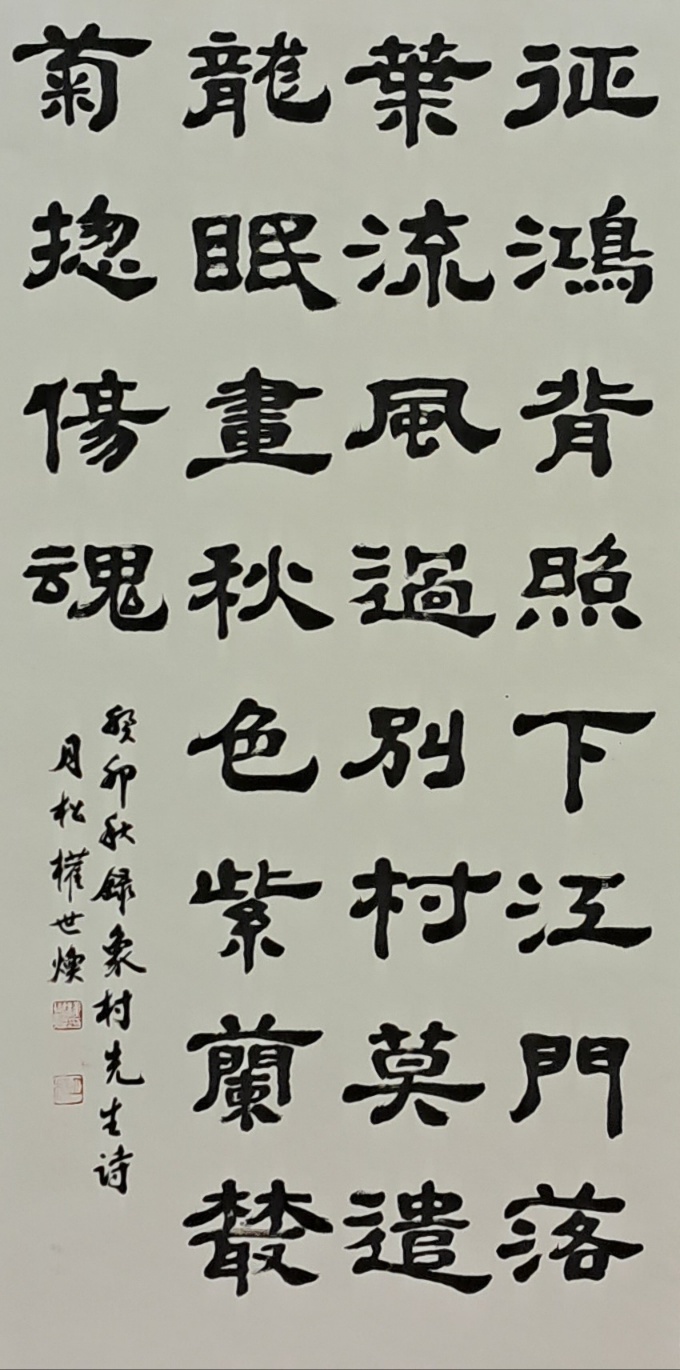 征鴻背照下江門落
葉流風過別村莫遣
龍眠畫秋色紫蘭叢
菊揔傷魂
癸卯秋錄象村先生詩
月松權世煥